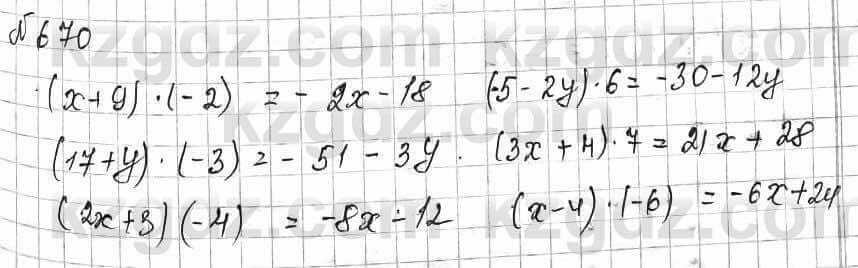 № 670
(x+9)·(-2) = -2x-18 (-5-2y)·6=-30-12y
(17+y)·(-3)=-51-3y. (3x+4)·7=21x+28
(2x+3)(-4) = -8x-12 (x-4)·(-6) = -6x+24
kzgdz.com
kzgdz.com
kzgdz.com